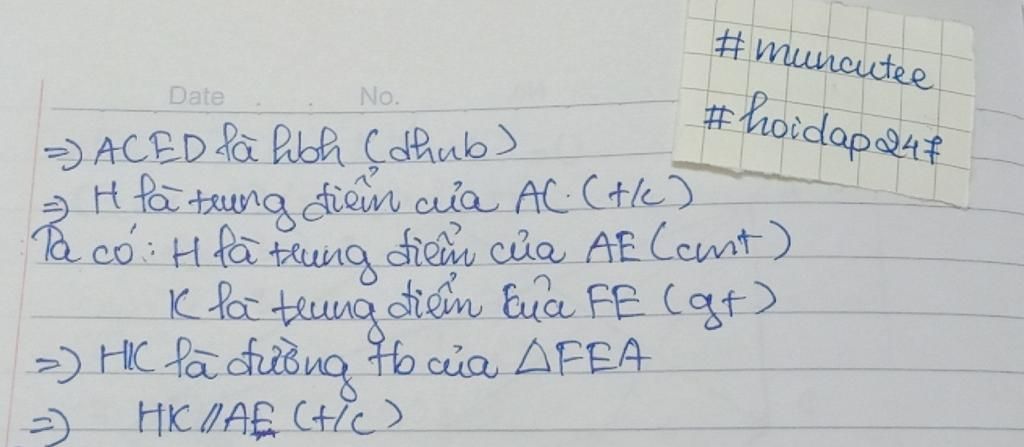 #muncutee
#hoidap247
Date . . No.
=> ACED là hbh (dhnb)
=> H là trung điểm của AC. (t/c)
Ta có: H là trung điểm của AE (cmt)
K là trung điểm của FE (gt)
=> HK là đường tb của △FEA
=> HK // AE (t/c)